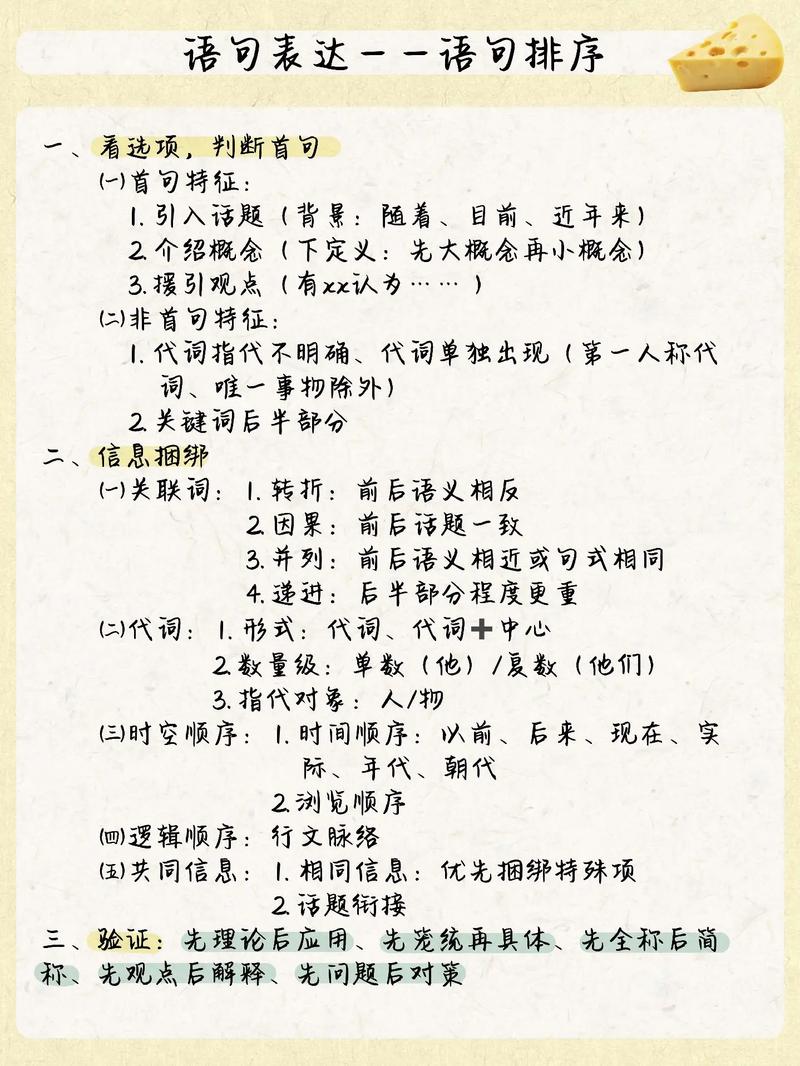 语句表达——语句排序
一、看选项，判断首句
㈠首句特征：
1. 引入话题（背景：随着、目前、近年来）
2. 介绍概念（下定义：先大概念再小概念）
3. 援引观点（有xx认为……）
㈡非首句特征：
1. 代词指代不明确、代词单独出现（第一人称代
词、唯一事物除外）
2. 关键词后半部分
二、信息捆绑
㈠关联词：1. 转折：前后语义相反
2. 因果：前后话题一致
3. 并列：前后语义相近或句式相同
4. 递进：后半部分程度更重
㈡代词：1. 形式：代词、代词➕中心
2. 数量级：单数（他）/复数（他们）
3. 指代对象：人/物
㈢时空顺序：1. 时间顺序：以前、后来、现在、实
际、年代、朝代
2. 浏览顺序
㈣逻辑顺序：行文脉络
㈤共同信息：1. 相同信息：优先捆绑特殊项
2. 话题衔接
三、验证：先理论后应用、先笼统再具体、先全称后简
称、先观点后解释、先问题后对策